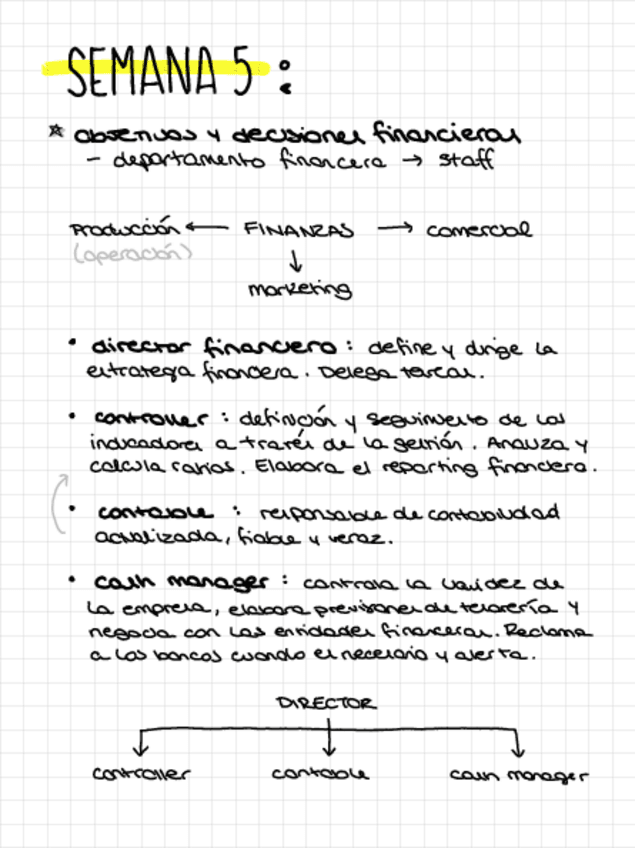 SEMANA 5 :
* objetivos y decisiones financieras
- departamento financiera → staff
Producción ← FINANZAS → comercial
(operación) ↓
marketing
• director financiero : define y dirige la
estrategia financiera. Delega tareas.
• controller : definición y seguimiento de los
indicadores a través de la gestión. Analiza y
calcula ratios. Elabora el reporting financiera.
• contable : responsable de contabilidad
actualizada, fiable y veraz.
• cash manager : controla la liquidez de
la empresa, elabora previsiones de tesorería y
negocia con las entidades financieras. Reclama
a los bancos cuando es necesario y alerta.
DIRECTOR
controller contable cash manager